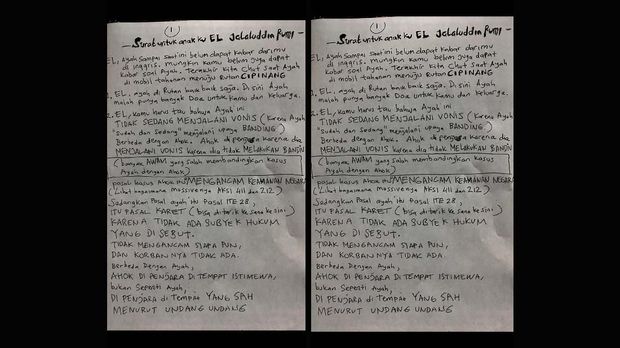 1
— Surat untuk anakku EL Jelaluddin Rumi —
EL, Ayah sampai saat ini belum dapat kabar darimu
di inggris. mungkin kamu belum juga dapat
kabar soal Ayah. Terakhir kita chat saat Ayah
di mobil tahanan menuju Rutan CIPINANG
EL, Ayah di Rutan baik baik saja. Di sini Ayah
malah punya banyak Doa untuk kamu dan keluarga.
2. EL, kamu harus tau bahwa Ayah ini
TIDAK SEDANG MENJALANI VONIS (karena Ayah
"Sudah dan Sedang" menjalani upaya BANDING)
Berbeda dengan Ahok. Ahok di penjara karena dia
MENJALANI VONIS karena dia TIDAK MELAKUKAN BANDIN
(banyak AWAM yang salah membandingkan kasus
Ayah dengan Ahok)
pasal kasus Ahok itu MENGANCAM KEAMANAN NEGARA
(Lihat bagaimana massivenya AKSI 411 dan 212)
Sedangkan Pasal ayah itu pasal ITE 28,
ITU PASAL KARET (bisa ditarik ke sana ke sini)
KARENA TIDAK ADA SUBYEK HUKUM
YANG DI SEBUT.
TIDAK MENGANCAM SIAPA PUN,
DAN KORBANNYA TIDAK ADA.
Berbeda Dengan Ayah,
AHOK DI PENJARA DI TEMPAT ISTIMEWA,
bukan Seperti Ayah,
DI PENJARA di Tempat YANG SAH
MENURUT UNDANG UNDANG
1
— Surat untuk anakku EL Jelaluddin Rumi —
EL, Ayah sampai saat ini belum dapat kabar darimu
di inggris. mungkin kamu belum juga dapat
kabar soal Ayah. Terakhir kita chat saat Ayah
di mobil tahanan menuju Rutan CIPINANG
EL, Ayah di Rutan baik baik saja. Di sini Ayah
malah punya banyak Doa untuk kamu dan keluarga.
2. EL, kamu harus tau bahwa Ayah ini
TIDAK SEDANG MENJALANI VONIS (karena Ayah
"Sudah dan Sedang" menjalani upaya BANDING)
Berbeda dengan Ahok. Ahok di penjara karena dia
MENJALANI VONIS karena dia TIDAK MELAKUKAN BANDIN
(banyak AWAM yang salah membandingkan kasus
Ayah dengan Ahok)
pasal kasus Ahok itu MENGANCAM KEAMANAN NEGARA
(Lihat bagaimana massivenya AKSI 411 dan 212)
Sedangkan Pasal ayah itu pasal ITE 28,
ITU PASAL KARET (bisa ditarik ke sana ke sini)
KARENA TIDAK ADA SUBYEK HUKUM
YANG DI SEBUT.
TIDAK MENGANCAM SIAPA PUN,
DAN KORBANNYA TIDAK ADA.
Berbeda Dengan Ayah,
AHOK DI PENJARA DI TEMPAT ISTIMEWA,
bukan Seperti Ayah,
DI PENJARA di Tempat YANG SAH
MENURUT UNDANG UNDANG